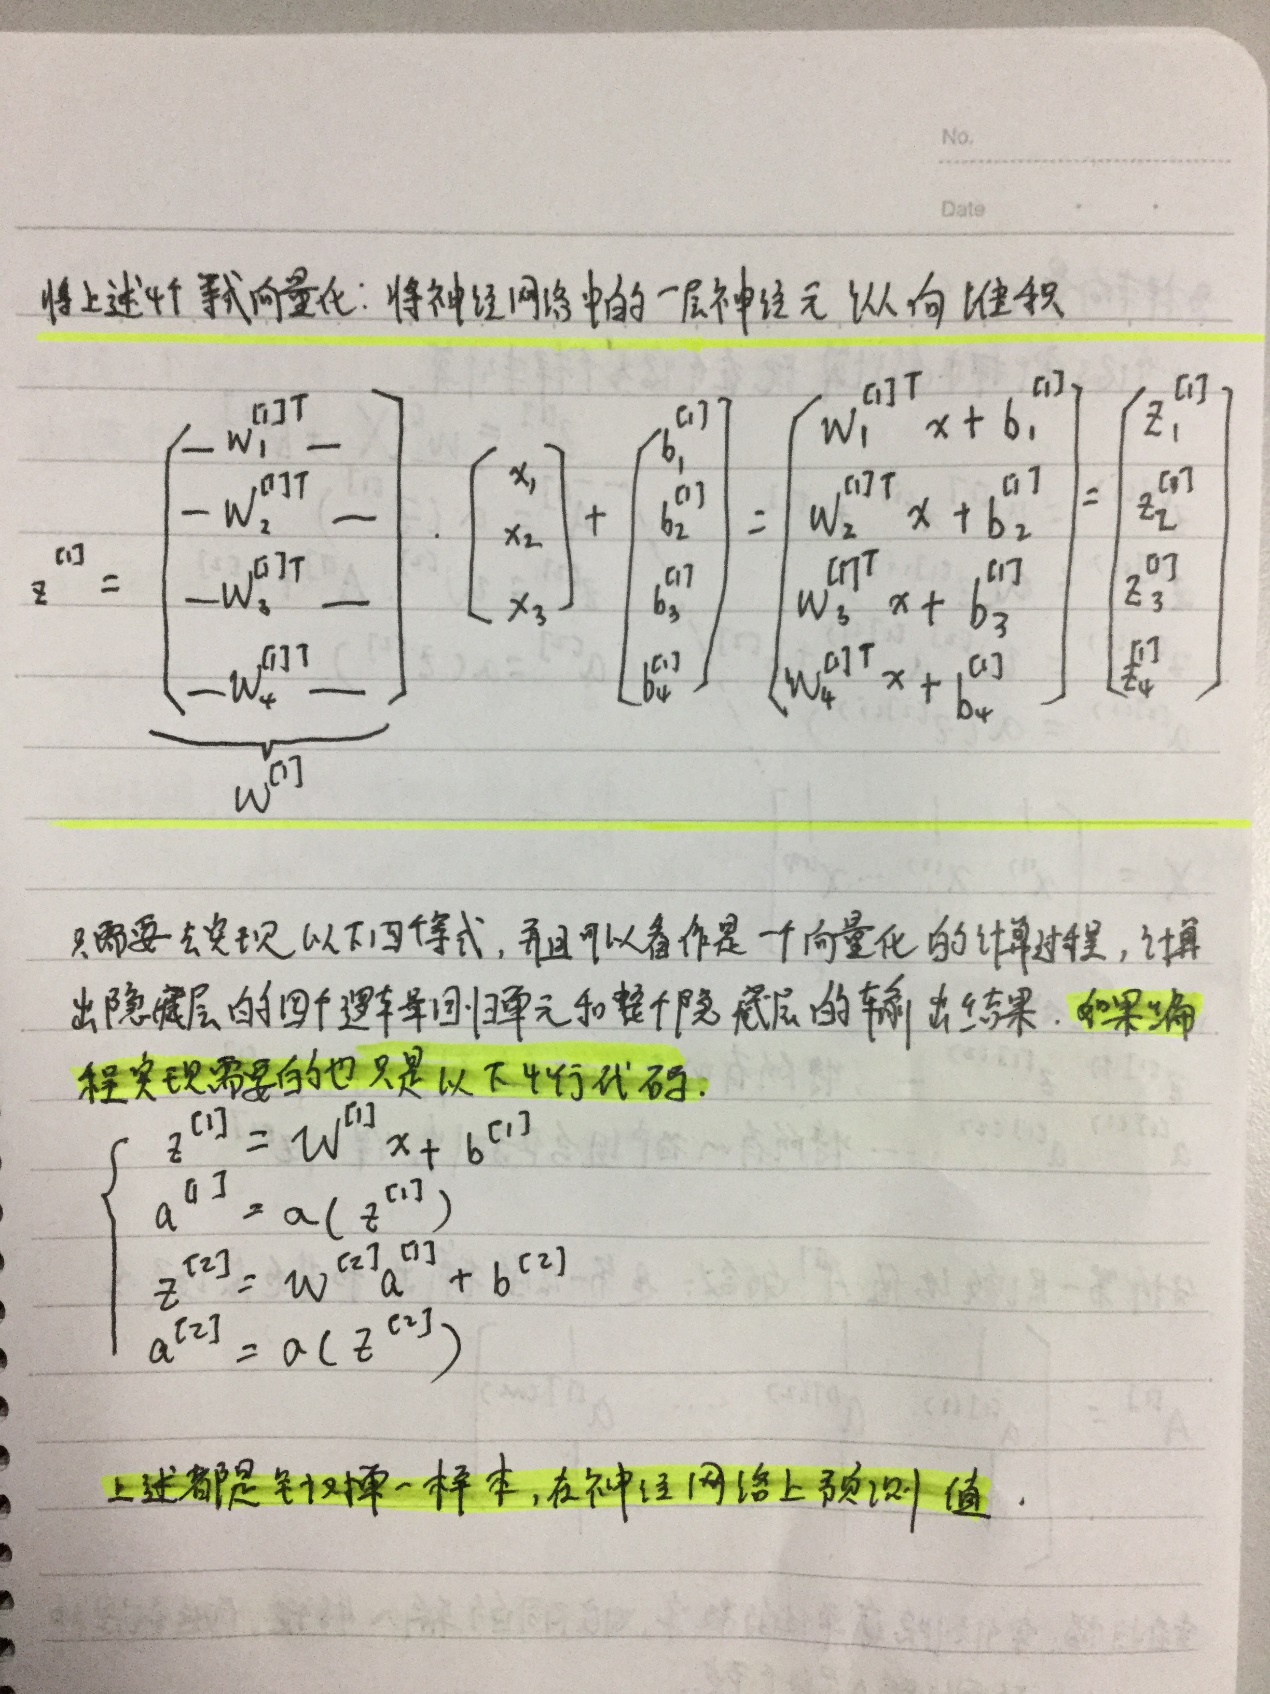 No.
Date
将上述4个等式向量化:将神经网络中的一层神经元纵向堆积
z^{[1]} = [—W_1^{[1]T}—; —W_2^{[1]T}—; —W_3^{[1]T}—; —W_4^{[1]T}—] · [x_1; x_2; x_3] + [b_1^{[1]}; b_2^{[1]}; b_3^{[1]}; b_4^{[1]}] = [W_1^{[1]T}x+b_1^{[1]}; W_2^{[1]T}x+b_2^{[1]}; W_3^{[1]T}x+b_3^{[1]}; W_4^{[1]T}x+b_4^{[1]}] = [z_1^{[1]}; z_2^{[1]}; z_3^{[1]}; z_4^{[1]}]
W^{[1]}
只需要去实现以下四个等式,并且可以看作是一个向量化的计算过程,计算
出隐藏层的四个逻辑回归单元和整个隐藏层的输出结果.如果编
程实现需要的也只是以下4行代码.
z^{[1]} = W^{[1]}x + b^{[1]}
a^{[1]} = a(z^{[1]})
z^{[2]} = W^{[2]}a^{[1]} + b^{[2]}
a^{[2]} = a(z^{[2]})
上述都是针对单一样本,在神经网络上预测值.